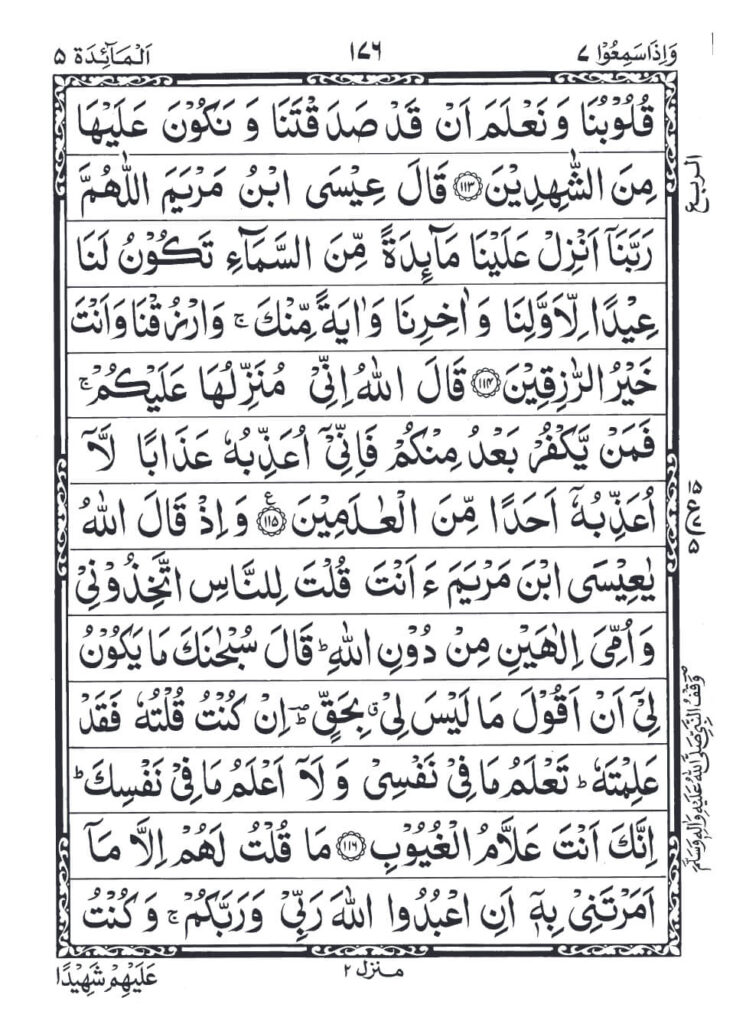 وَاِذَا سَمِعُوْا ٧
١٧٦
اَلْمَآئِدَة ٥
قُلُوْبُنَا وَ نَعْلَمَ اَنْ قَدْ صَدَقْتَنَا وَ نَكُوْنَ عَلَيْهَا
مِنَ الشّٰهِدِيْنَ ﴿١١٣﴾ قَالَ عِيْسَى ابْنُ مَرْيَمَ اللّٰهُمَّ
الربع
رَبَّنَاۤ اَنْزِلْ عَلَيْنَا مَآئِدَةً مِّنَ السَّمَآءِ تَكُوْنُ لَنَا
عِيْدًا لِّاَوَّلِنَا وَ اٰخِرِنَا وَ اٰيَةً مِّنْكَ ۚ وَ ارْزُقْنَا وَ اَنْتَ
خَيْرُ الرّٰزِقِيْنَ ﴿١١٤﴾ قَالَ اللّٰهُ اِنِّيْ مُنَزِّلُهَا عَلَيْكُمْ ۚ
فَمَنْ يَّكْفُرْ بَعْدُ مِنْكُمْ فَاِنِّيْۤ اُعَذِّبُهٗ عَذَابًا لَّاۤ
اُعَذِّبُهٗۤ اَحَدًا مِّنَ الْعٰلَمِيْنَ ﴿١١٥﴾ؑ وَ اِذْ قَالَ اللّٰهُ
يٰعِيْسَى ابْنَ مَرْيَمَ ءَ اَنْتَ قُلْتَ لِلنَّاسِ اتَّخِذُوْنِيْ
وَ اُمِّيَ اِلٰهَيْنِ مِنْ دُوْنِ اللّٰهِ ؕ قَالَ سُبْحٰنَكَ مَا يَكُوْنُ
لِيْۤ اَنْ اَقُوْلَ مَا لَيْسَ لِيْ ۗ بِحَقٍّ ؕ اِنْ كُنْتُ قُلْتُهٗ فَقَدْ
عَلِمْتَهٗ ؕ تَعْلَمُ مَا فِيْ نَفْسِيْ وَ لَاۤ اَعْلَمُ مَا فِيْ نَفْسِكَ ؕ
وقف النبي صلى الله عليه واله وسلم
اِنَّكَ اَنْتَ عَلَّامُ الْغُيُوْبِ ﴿١١٦﴾ مَا قُلْتُ لَهُمْ اِلَّا مَاۤ
اَمَرْتَنِيْ بِهٖۤ اَنِ اعْبُدُوا اللّٰهَ رَبِّيْ وَ رَبَّكُمْ ۚ وَ كُنْتُ
منزل ٢
عَلَيْهِمْ شَهِيْدًا